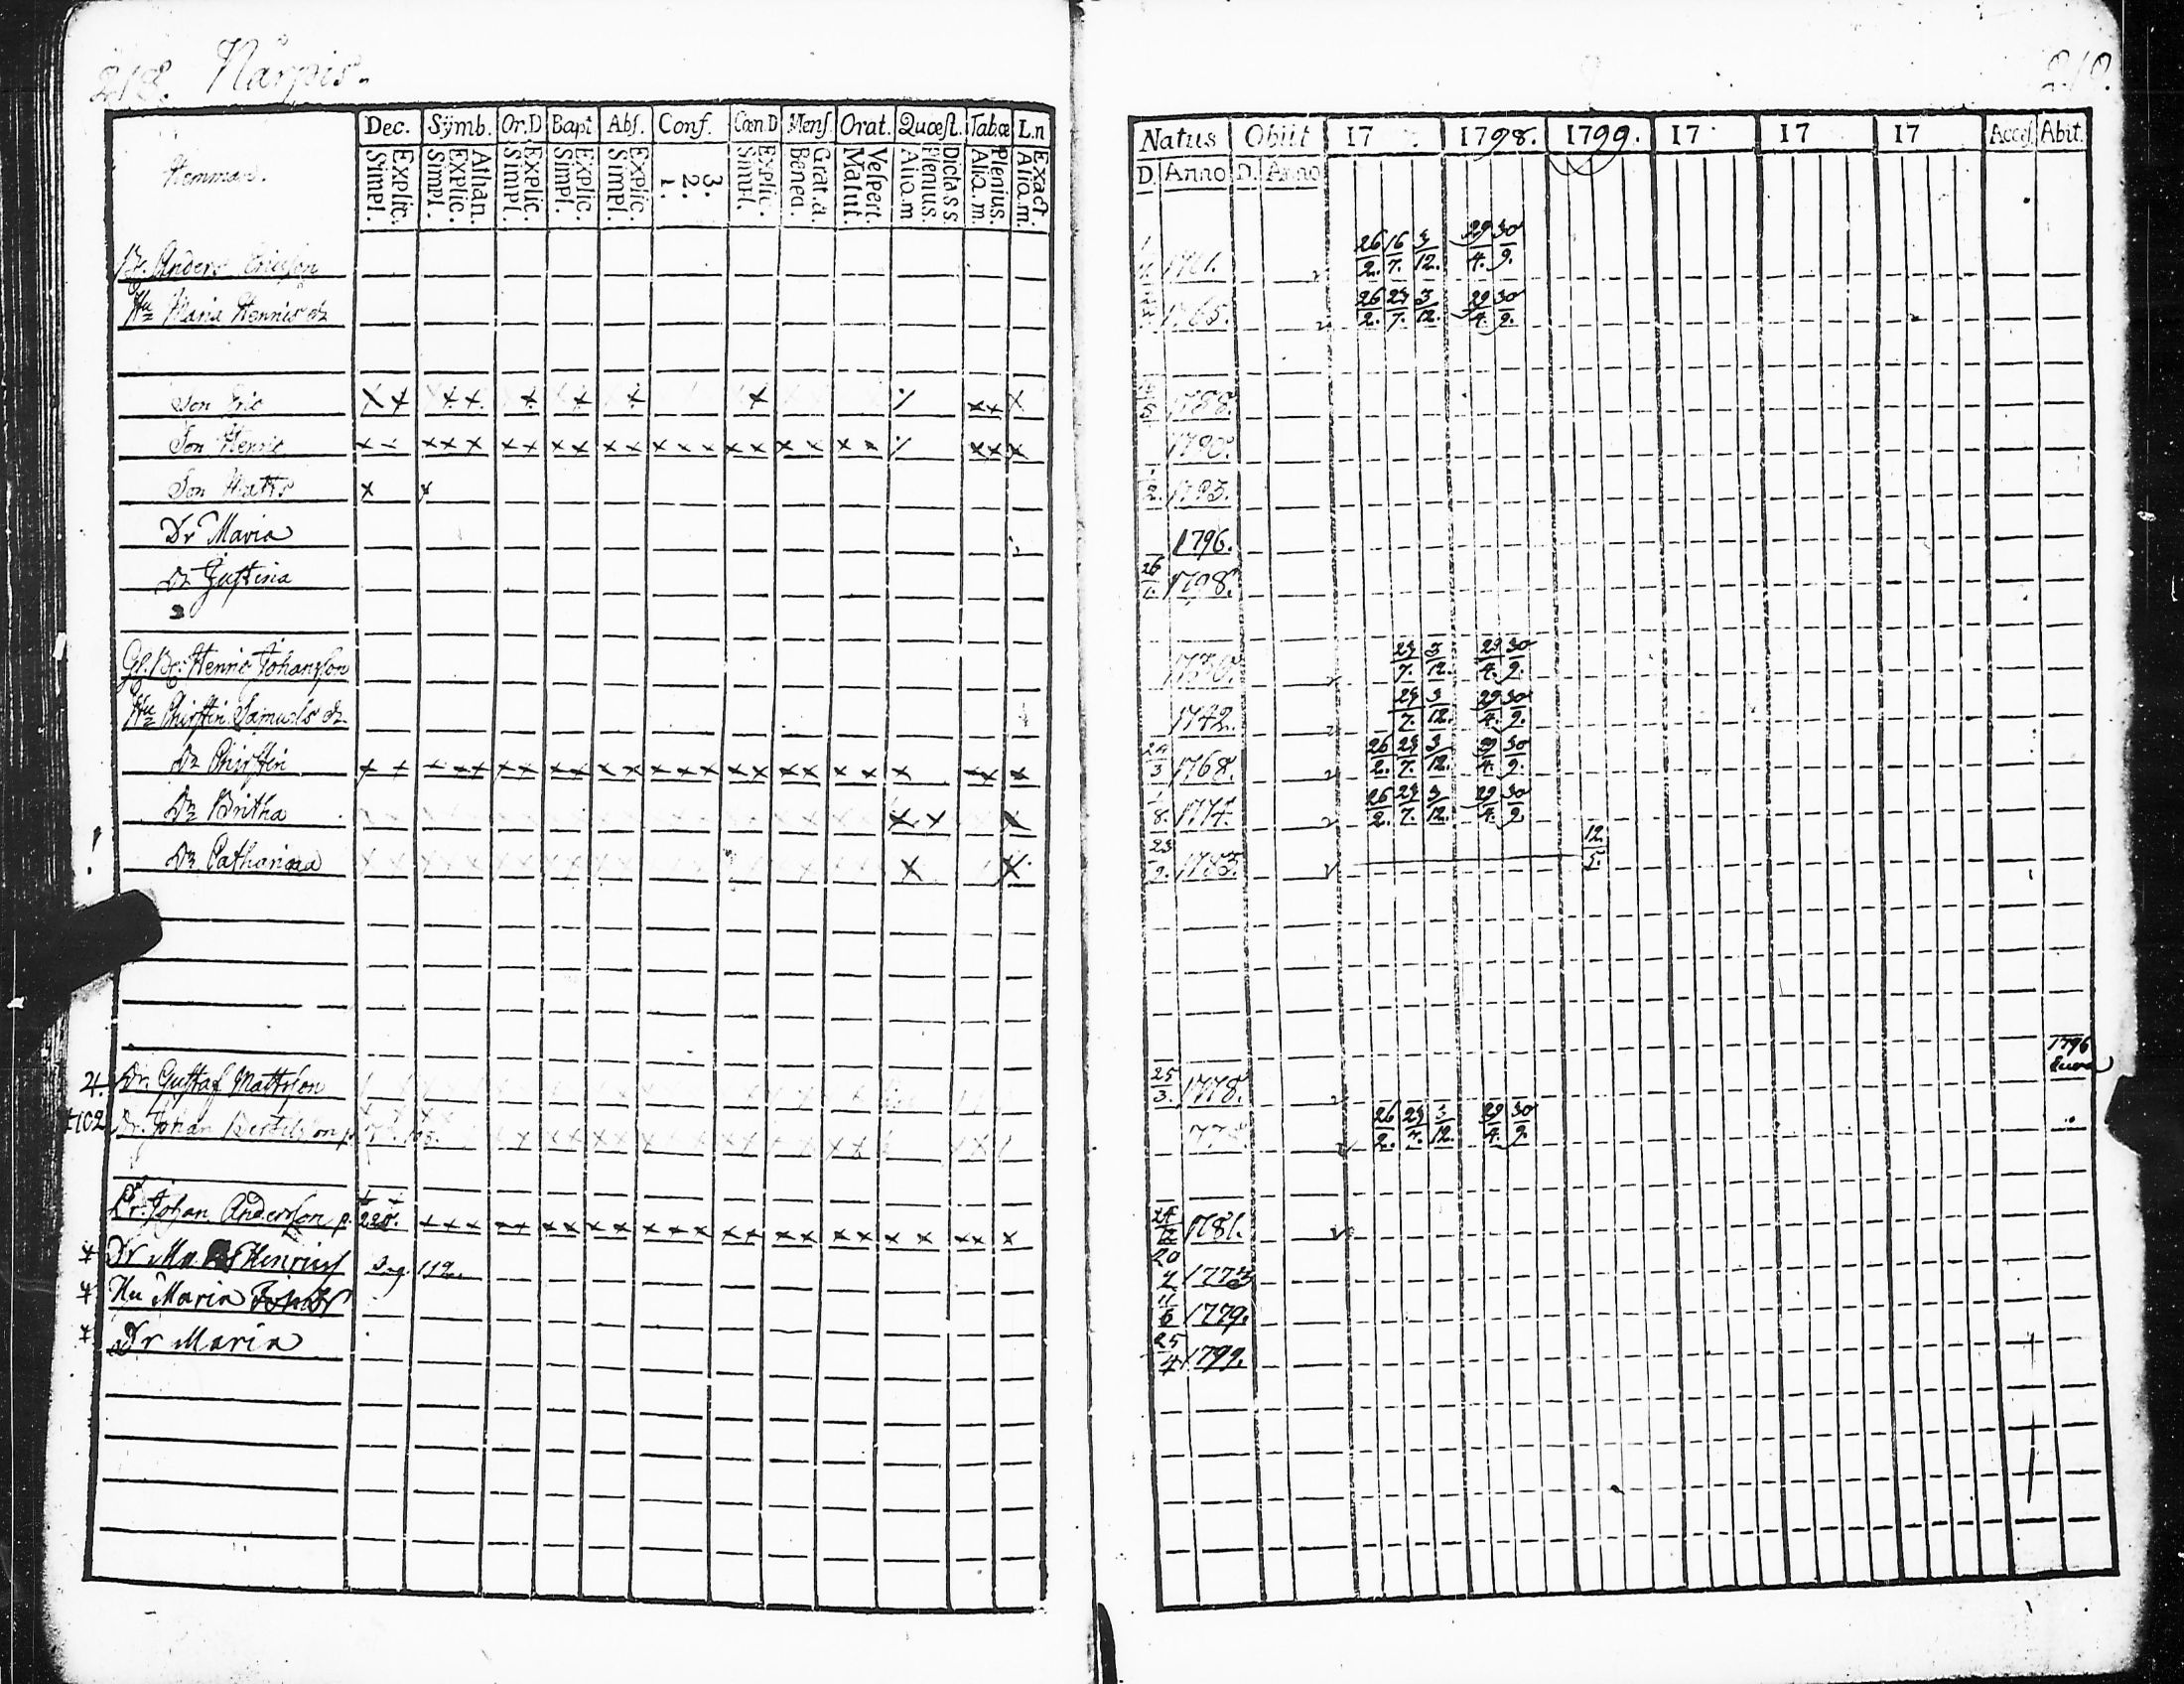 218. Närpis.
Dec. Sÿmb. Or.D Bapt Abs. Conf. Cœn.D Mens. Orat. Quæst. Tab.œ L.n
Hemman.
Explic. Simpl. Athan. Explic. Simpl. Explic. Simpl. Explic. Simpl. Explic. Simpl. 3. 2. 1. Explic. Simpl. Grat.a. Bened. Vespert. Matut. Dicta s s. Plenius. Aliq.m Plenius. Aliq.m. Exact Aliq.m.
Bd. Anders Ericsson
Hu Maria Henrics dr
Son Eric
Son Henric
Son Matts
Dr Maria
Dr Justina
Gl. Bd. Henric Johansson
Hu Chirstin Samuels dr
Dr Chirstin
Dr Britha
Dr Catharina
4. Dr. Gustaf Mattsson
102 Dr. Johan Bertelsson p.
Dr. Johan Andersson p. 220.
Dr Henrics 112.
Hu Maria
Dr Maria
219.
Natus Obiit 17 1798. 1799. 17 17 17 Acceſ Abit.
D. Anno D. Anno
26/2. 16/7. 3/12. 29/4. 30/9.
1765. 26/2. 23/7. 3/12. 29/4. 30/9.
1788.
1790.
1793.
1796.
26/1. 1798.
23/7. 3/12. 29/4. 30/9.
1742. 23/7. 3/12. 29/4. 30/9.
1768. 26/2. 23/7. 3/12. 29/4. 30/9.
1774. 26/2. 23/7. 3/12. 29/4. 30/9.
23/9. 1783. 12/5.
25/3. 1778. 1796
26/2. 23/7. 3/12. 29/4. 30/9.
24/12 1781.
1773
11/6 1779.
25/4 1799.